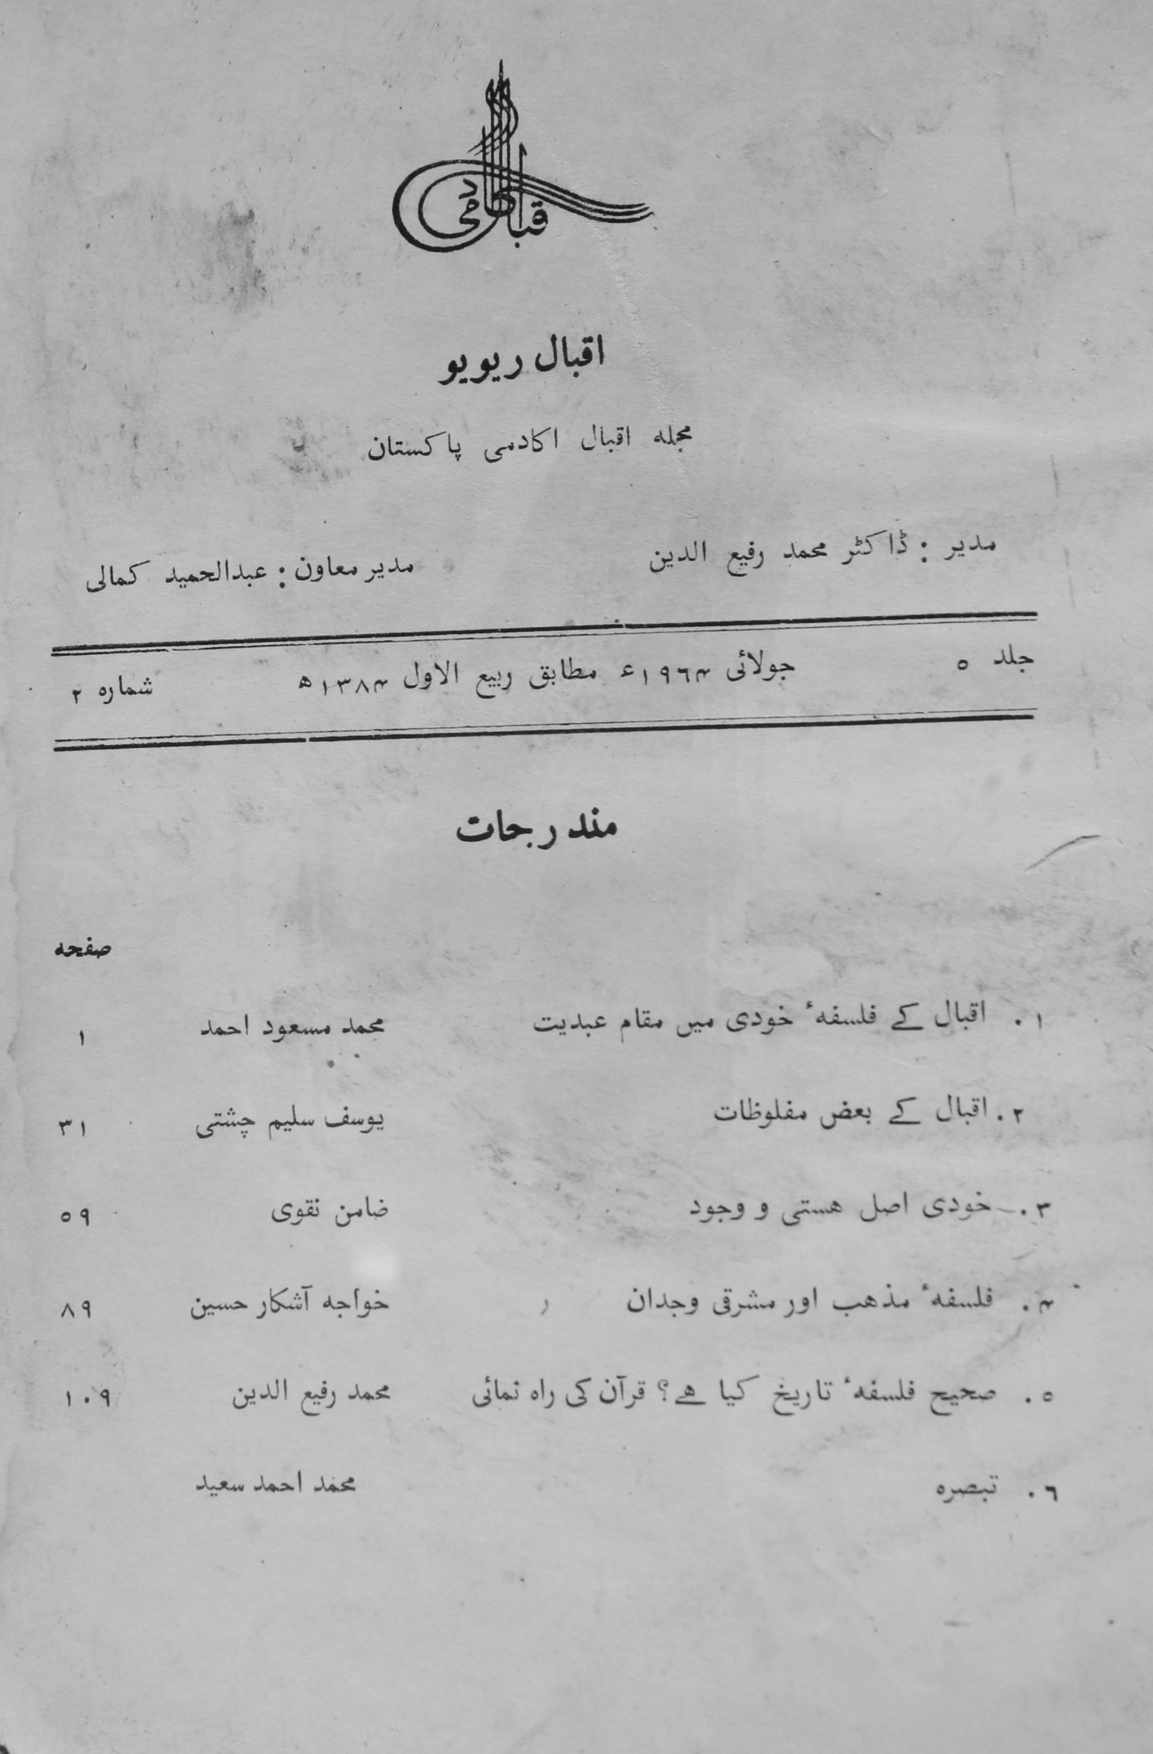 اقبال اکادمی
اقبال ریویو
مجله اقبال اکادمی پاکستان
مدیر : ڈاکٹر محمد رفیع الدین مدیر معاون : عبدالحمید کمالی
جلد ۵ جولائی ۱۹۶۴ء مطابق ربیع الاول ۱۳۸۴ھ شماره ۲
مندرجات
صفحه
۱ . اقبال کے فلسفهٔ خودی میں مقام عبدیت محمد مسعود احمد ۱
۲ . اقبال کے بعض مفلوظات یوسف سلیم چشتی ۳۱
۳ . خودی اصل هستی و وجود ضامن نقوی ۵۹
۴ . فلسفهٔ مذهب اور مشرقی وجدان خواجه آشکار حسین ۸۹
۵ . صحیح فلسفهٔ تاریخ کیا هے؟ قرآن کی راه نمائی محمد رفیع الدین ۱۰۹
۶ . تبصره محمد احمد سعید